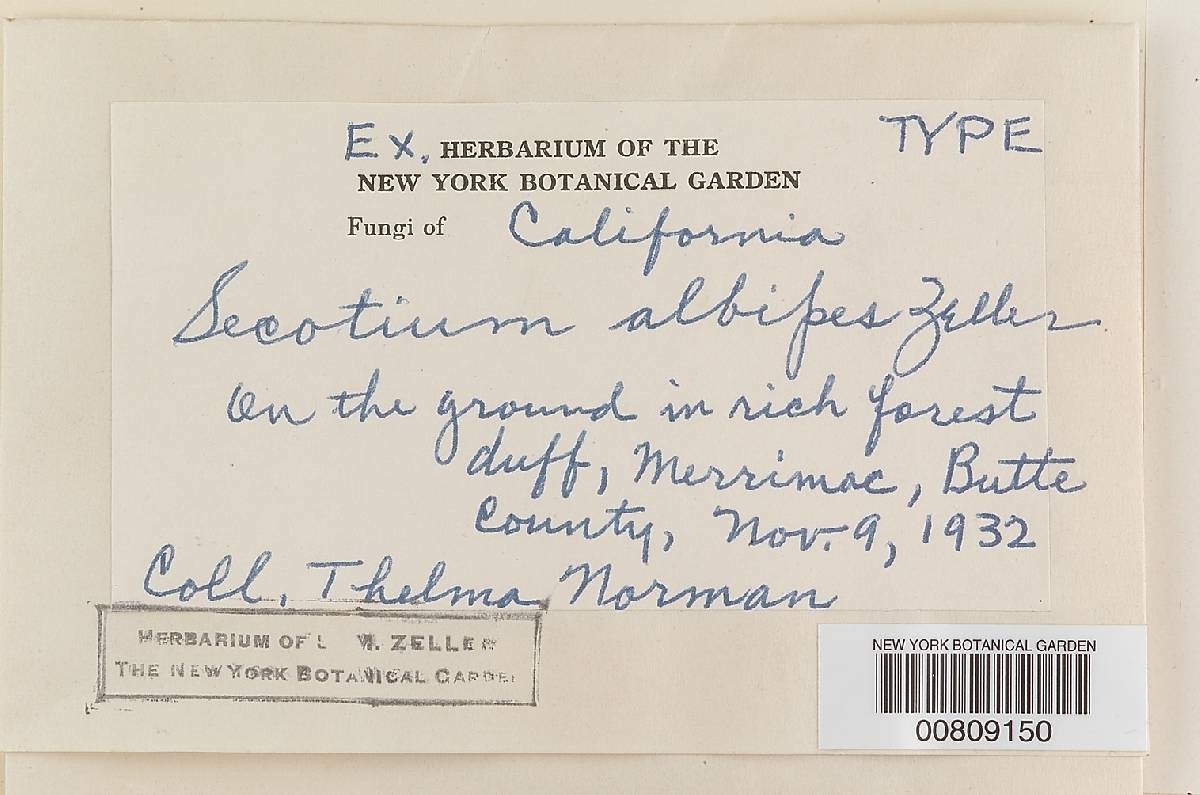 Ex. HERBARIUM OF THE TYPE
NEW YORK BOTANICAL GARDEN
Fungi of California
Secotium albipes Zeller
On the ground in rich forest
duff, Merrimac, Butte
County, Nov. 9, 1932
Coll. Thelma Norman
HERBARIUM OF L M. ZELLER
THE NEW YORK BOTANICAL GARDEN
NEW YORK BOTANICAL GARDEN
00809150